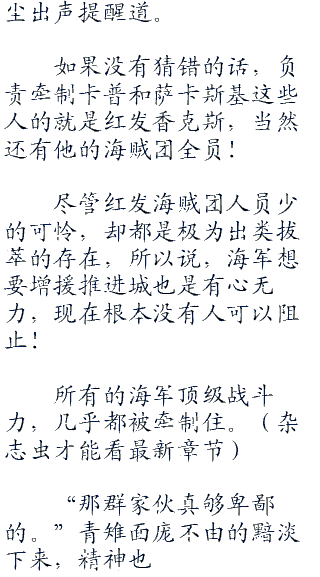 尘出声提醒道。
如果没有猜错的话，负
责牵制卡普和萨卡斯基这些
人的就是红发香克斯，当然
还有他的海贼团全员！
尽管红发海贼团人员少
的可怜，却都是极为出类拔
萃的存在，所以说，海军想
要增援推进城也是有心无
力，现在根本没有人可以阻
止！
所有的海军顶级战斗
力，几乎都被牵制住。（杂
志虫才能看最新章节）
“那群家伙真够卑鄙
的。”青雉面庞不由的黯淡
下来，精神也